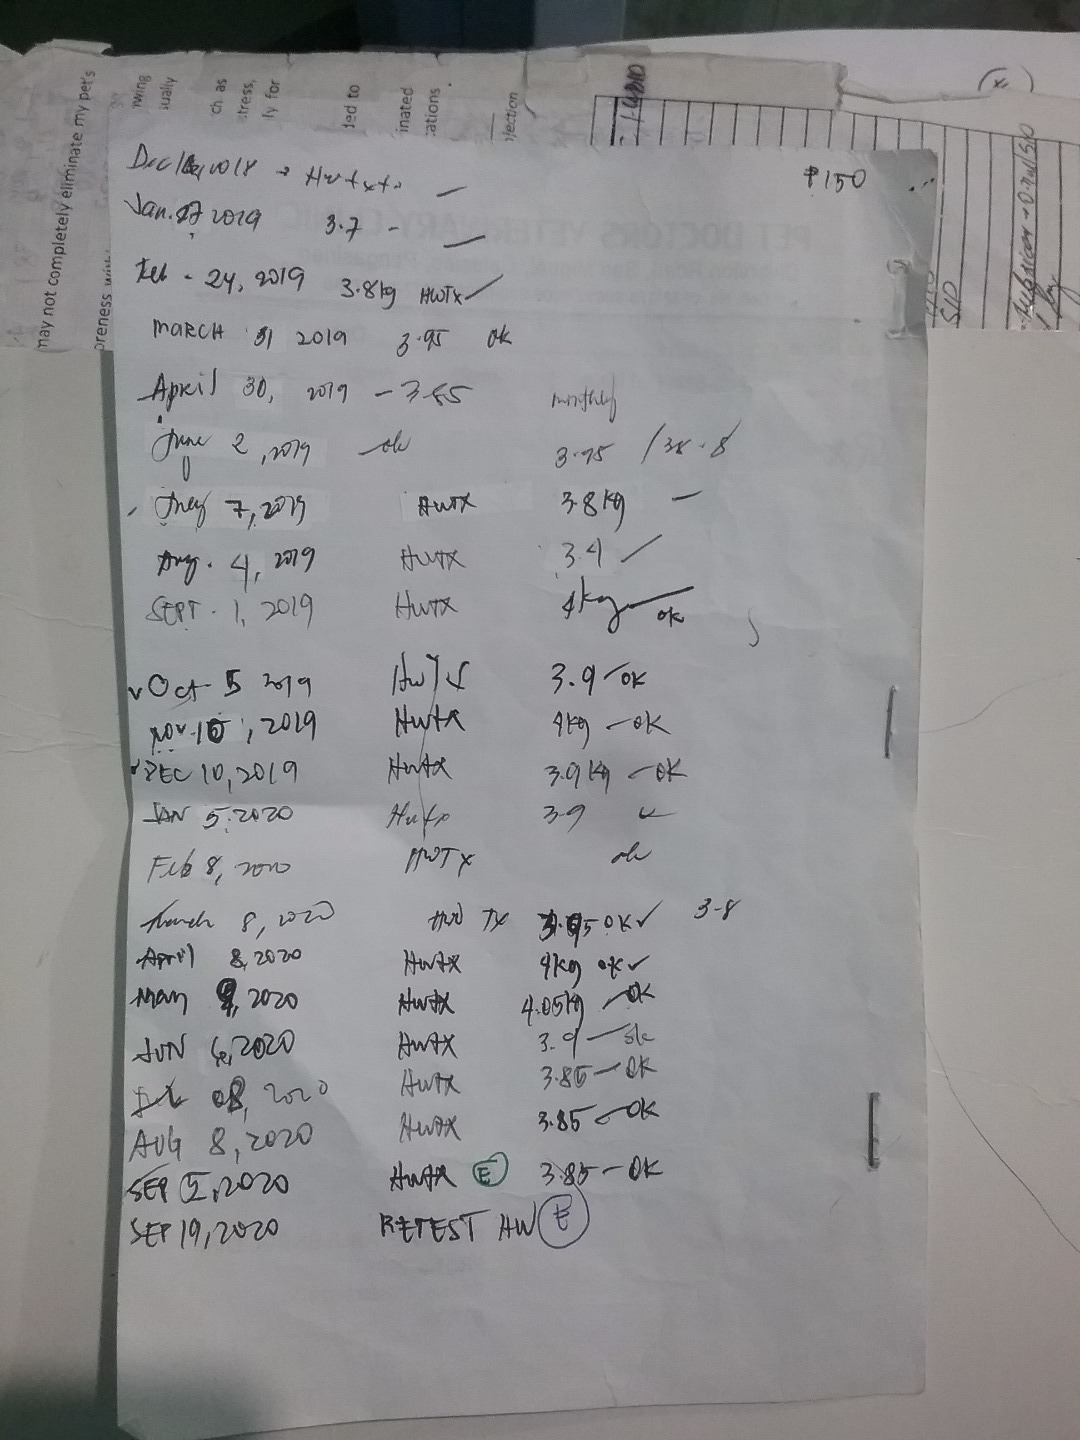 may not completely eliminate my pet's
ch as
ded to
₱150
2018 → Hwtx
Jan. 27 2019 3.7 -
Feb - 24, 2019 3.8kg HWTX ✓
MARCH 31 2019 3.95 ok
April 30, 2019 - 3.85 monthly
June 2, 2019 ok 3.95 / 38.8
7, 2019 HWTX 3.8kg -
Aug. 4, 2019 HWTX 3.4
SEPT. 1, 2019 HWTX 4kg ok
✓ Oct 5 2019 HWTX 3.9 - OK
NOV. 10, 2019 HWTX 4kg - OK
✓ DEC 10, 2019 HWTX 3.9kg - OK
JAN 5, 2020 Hwtx 3.9
Feb 8, 2020 HWTX ok
March 8, 2020 HW TX OK ✓ 3.8
April 8, 2020 HWTX 4kg ok ✓
May 9, 2020 HWTX 4.05kg - OK
JUN 6, 2020 HWTX 3.9 - ok
08, 2020 HWTX 3.85 - OK
AUG 8, 2020 HWTX 3.85 - OK
SEP 5, 2020 HWTX E 3.85 - OK
SEP 19, 2020 RETEST HW E